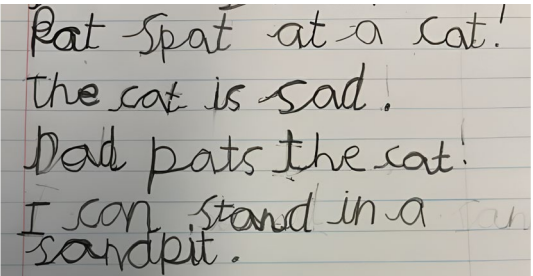 Pat spat at a cat!
the cat is sad.
Dad pats the cat!
I can stand in a
sandpit.